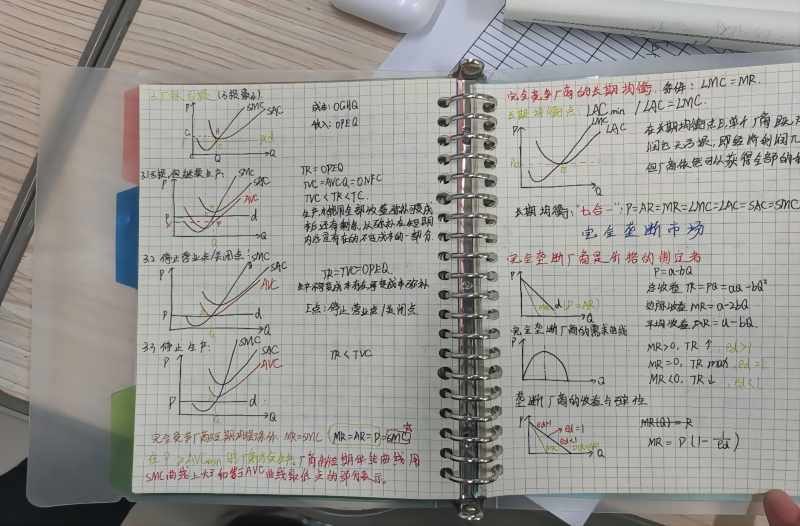 3.厂商亏损 (亏损最小)
P
SMC
SAC
成本: OGHQ
收入: OPEQ
G
A
P
E
d
Q
Q
3.1亏损,但继续生产:
P
SMC
SAC
AVC
d
Q
TR=OPEQ
TVC=AVC·Q=ONFC
TVC<TR<TC.
生产才能用全部收益弥补可变成
本后还有剩余,以弥补在短期
内总是存在的不变成本的一部分.
3.2 停止营业点/关闭点:
P
SMC
SAC
AVC
d
Q
TR=TVC=OPEQ
E点:停止营业点/关闭点.
3.3 停止生产:
P
SMC
SAC
AVC
d
Q
TR<TVC
完全竞争厂商短期均衡条件 MR=SMC (MR=AR=P=SMC)
SMC曲线上大于和等于AVC曲线最低点的部分表示.
完全竞争厂商的长期均衡. 条件: LMC=MR.
长期均衡点: LAC min / LAC=LMC.
P
LMC
LAC
E
Q
在长期均衡点E,单个厂商既无
润也无亏损,即经济利润
长期均衡: "七合一": P=AR=MR=LMC=LAC=SAC=SMC
完全垄断市场
完全垄断厂商是价格的制定者
P
MR
d(P=AR)
Q
P=a-bQ
总收益 TR=PQ=aQ-bQ²
边际收益 MR=a-2bQ
平均收益 AR=a-bQ.
完全垄断厂商的需求曲线
P
Q
MR>0, TR↑, ed>1
MR=0, TR max, ed=1
MR<0, TR↓, ed<1
垄断厂商的收益与弹性
P
ed>1
ed=1
ed<1
MR
Q
MR=P(1-1/ed)